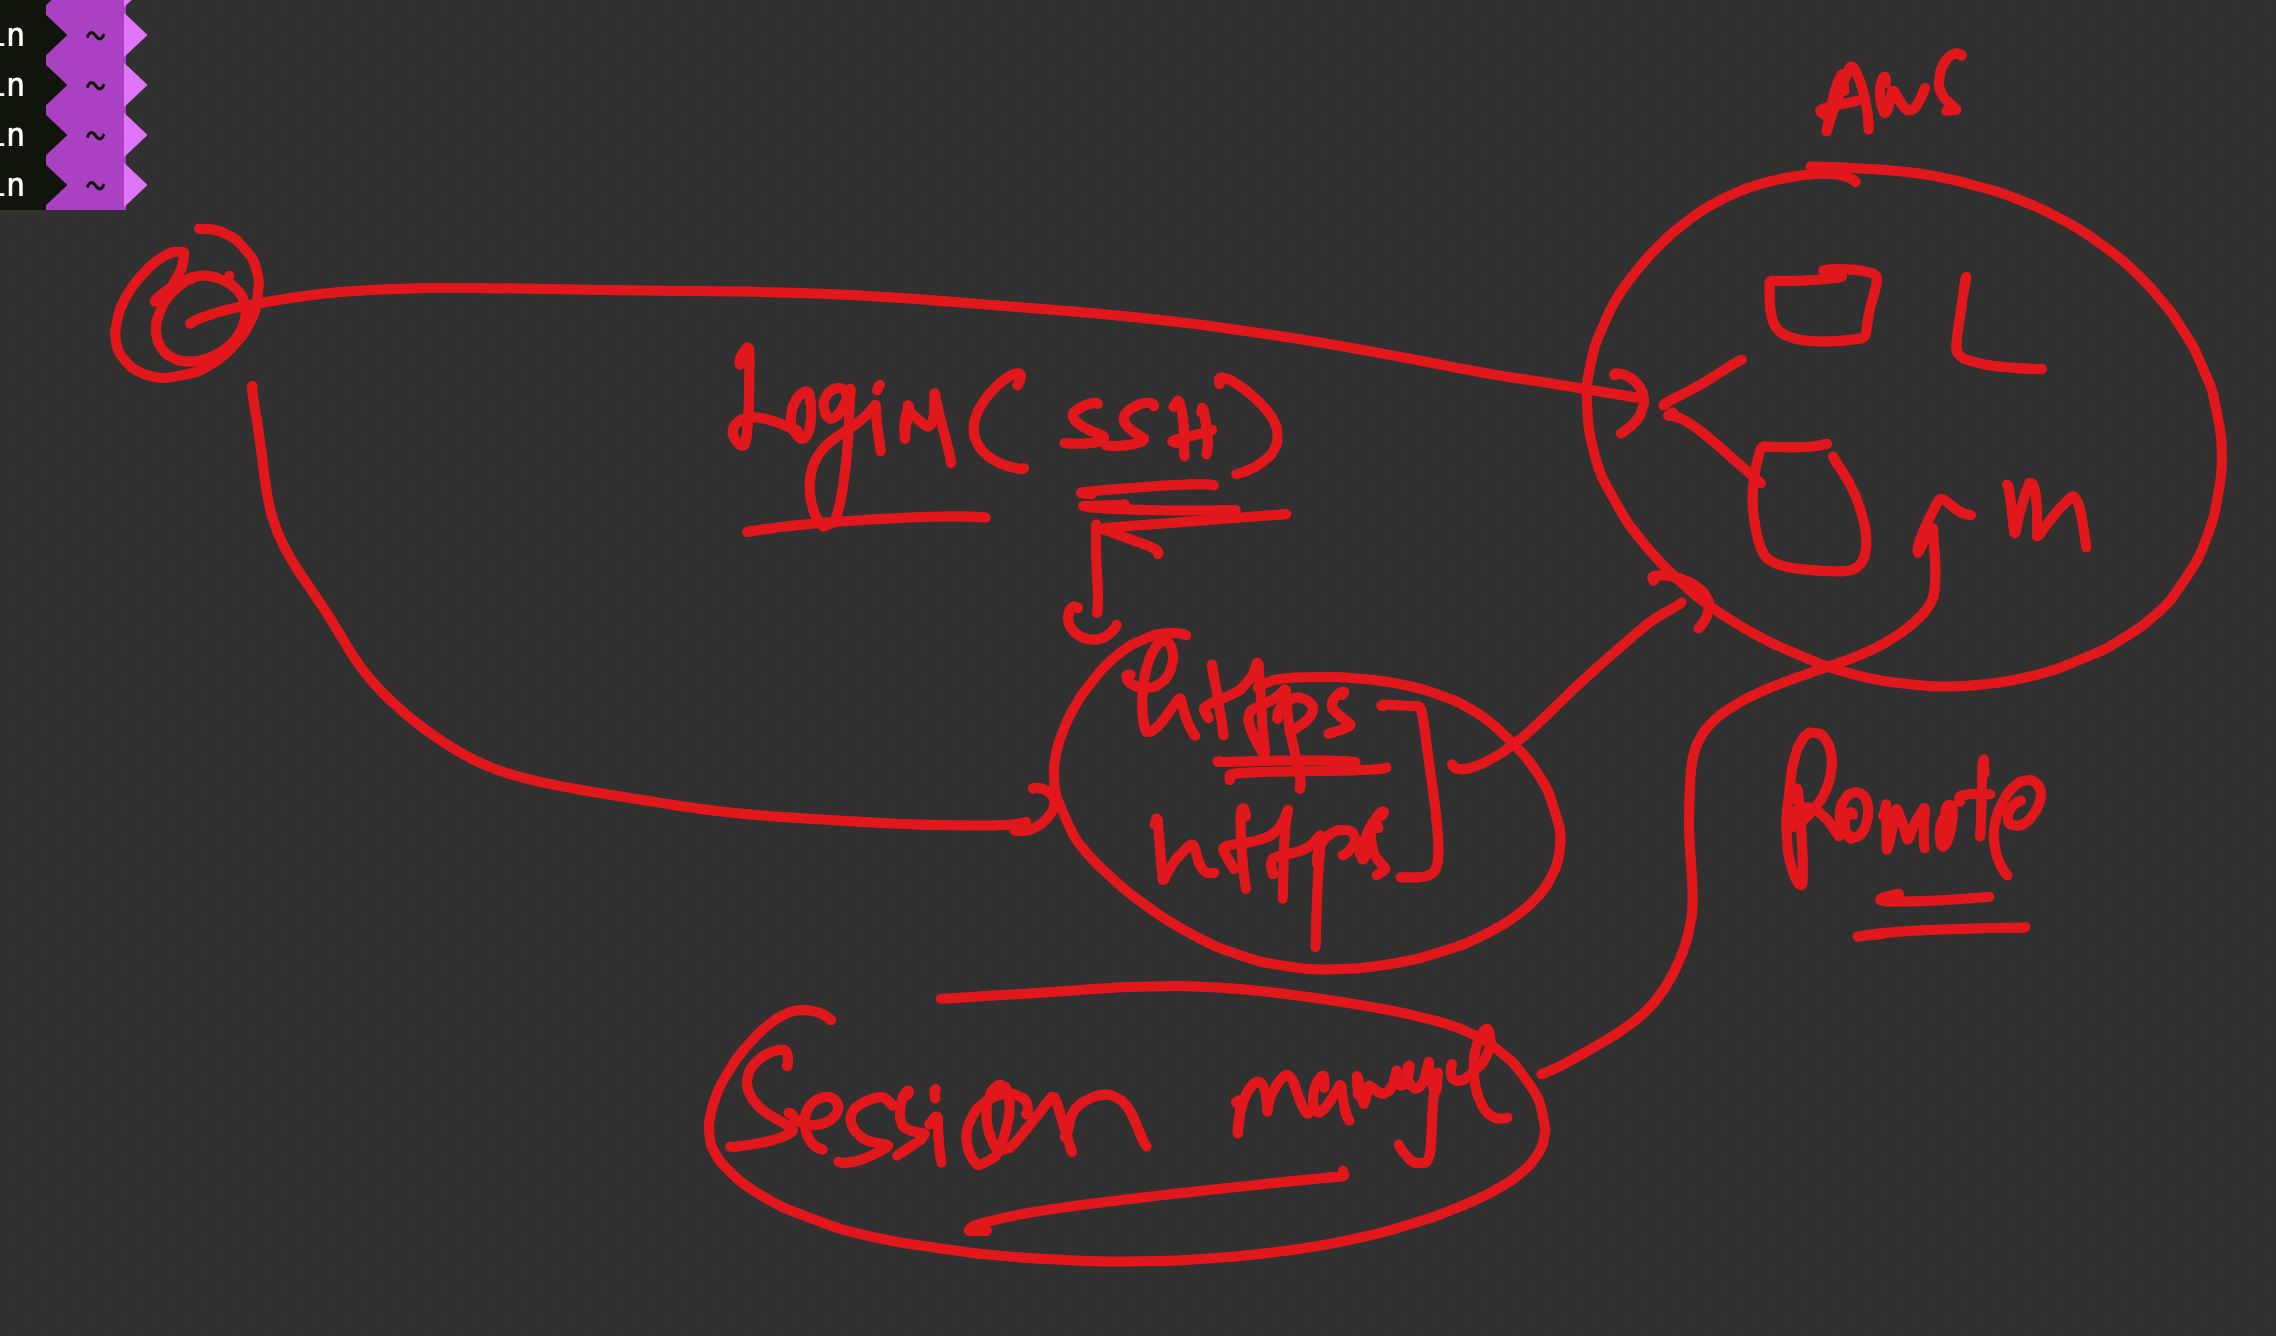 in ~
in ~
in ~
in ~
AWS
L
Login (SSH)
m
https
https
Remote
Session manager